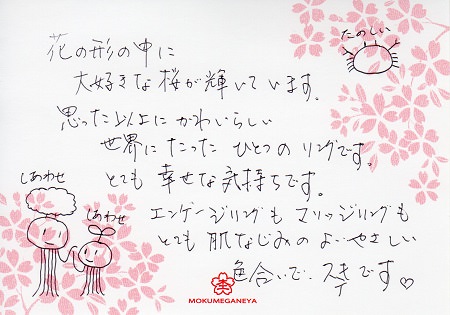 花の形の中に
大好きな桜が輝いています。
思った以上にかわいらしい
世界にたった ひとつの リングです。
とても 幸せな気持ちです。
エンゲージリングも マリッジリングも
とても 肌なじみの よい やさしい
色合いで、スキです♡
たのしい
しあわせ
しあわせ
MOKUMEGANEYA